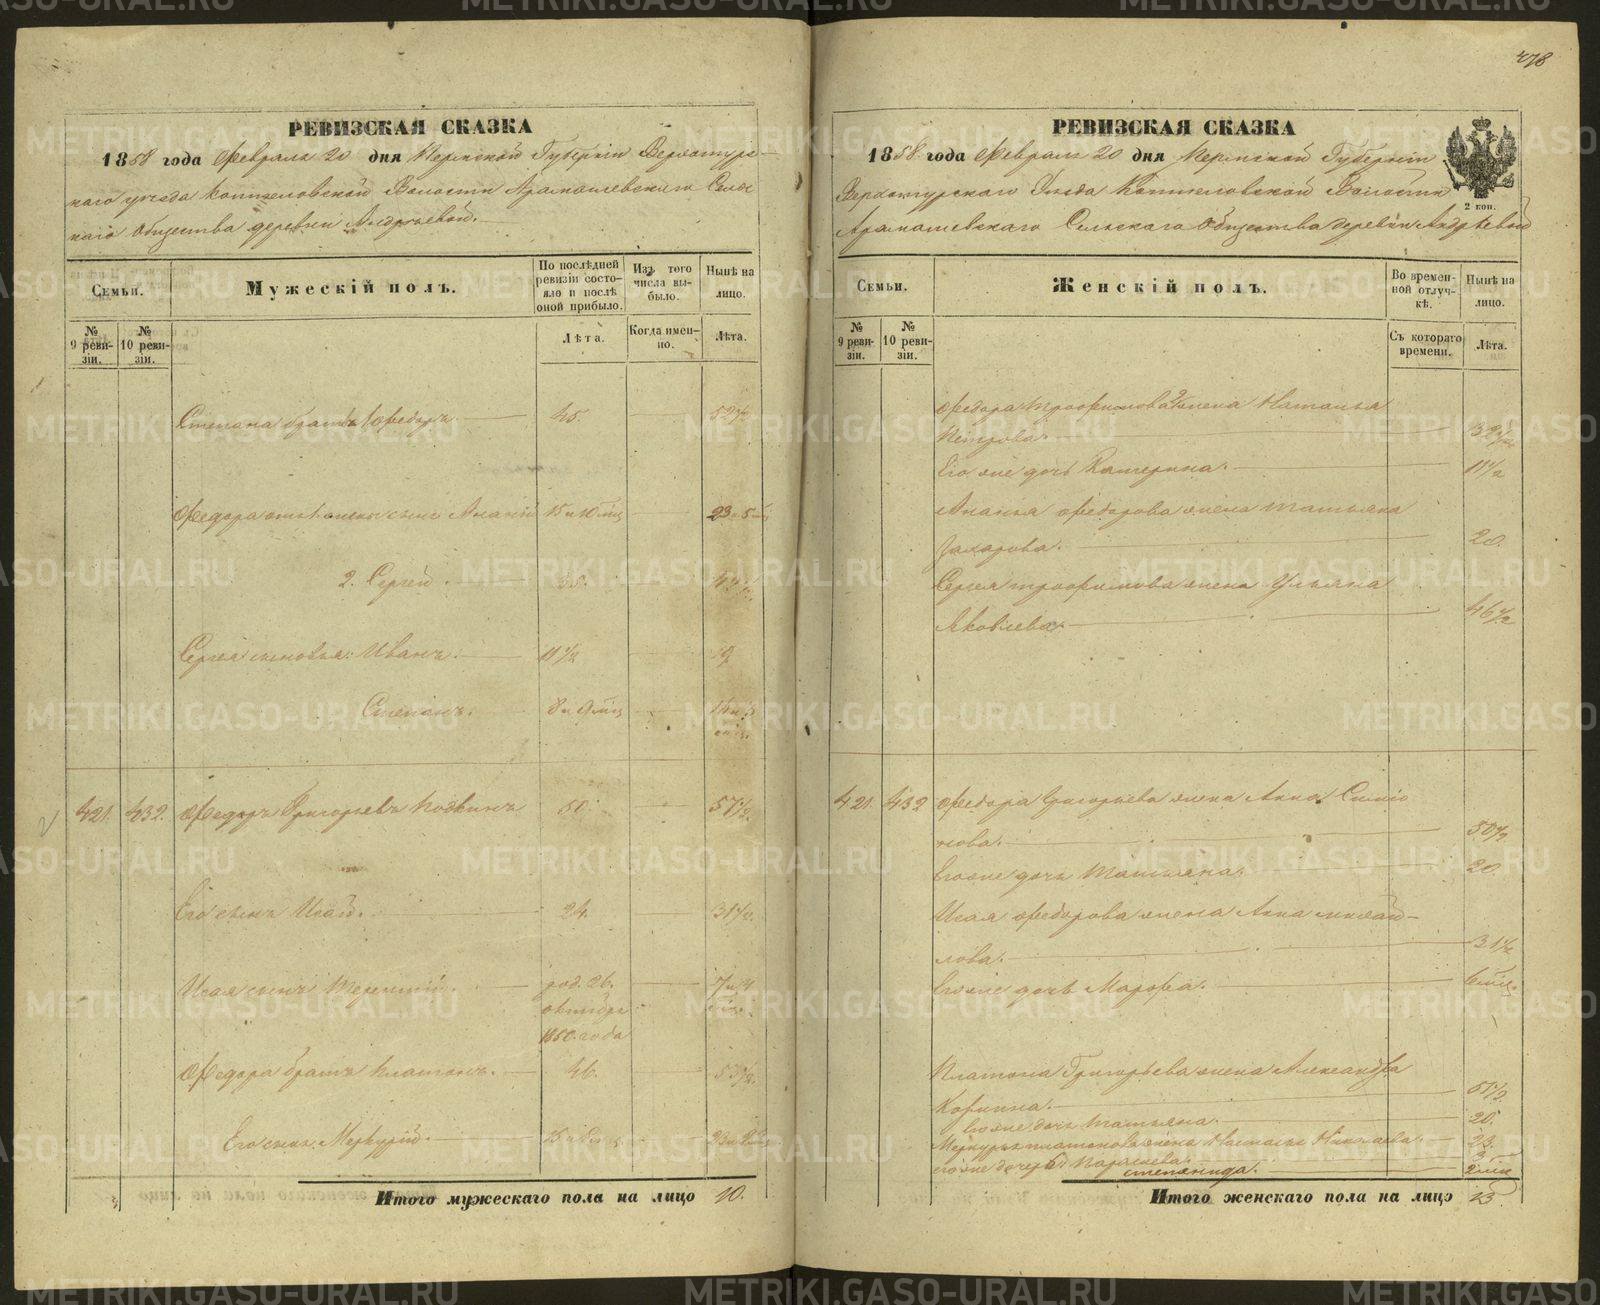 478
РЕВИЗСКАЯ СКАЗКА
1858 года Февраля 20 дня Пермской Губерніи Верхотурс-
каго уезда Коптеловской Волости Арамашевскаго Сельс
каго общества деревни Андреевой.
Семьи.
Мужескій полъ.
По послѣдней ревизіи состо-
яло и послѣ оной прибыло.
Изъ того числа вы-
было.
Нынѣ на лицо.
№ 9 реви-
зіи.
№ 10 реви-
зіи.
Лѣта.
Когда имен-
но.
Лѣта.
Степана братъ Федоръ. 45. 52½
Федора сынъ Ананій 15 и 10 мѣц 23 и 5 мѣ
2. Сергѣй. 35.
Сергея сыновья: Иванъ. 11½ 19
Степанъ. 8 и 9 мѣц
421. 432. Федоръ Григорьевъ 50. 57½
Его сынъ Исай. 24. 31½.
Исая сынъ Терентій. род. 26.
октября
1850. года
Федора братъ Платонъ. 46.
Его сынъ Меркурій.
Итого мужескаго пола на лицо 10.
РЕВИЗСКАЯ СКАЗКА
1858 года Февраля 20 дня Пермской Губерніи
Верхотурскаго Уезда Коптеловской Волости
Арамашевскаго Сельскаго общества деревни Андреевой
2 коп.
Семьи.
Женскій полъ.
Во времен-
ной отлуч-
кѣ.
Нынѣ на лицо.
№ 9 реви-
зіи.
№ 10 реви-
зіи.
Съ котораго времени.
Лѣта.
Федора Трофимова жена Наталья
Петрова.
Его же дочь Катерина. 11½
Ананья Федорова жена Татьяна
Захарова. 20.
Сергея Трофимова жена Ульяна
Яковлева. 46½
421. 432 Федора Григорьева жена Анна Симио
нова. 50½
Его же дочь Татьяна. 20
Исая Федорова жена Анна Михай-
лова. 31½
Его же дочь Марфа. 6 мѣц.
Платона Григорьева жена Александра
Карпина. 51½
Его же дочь Татьяна. 20.
Меркурья Платонова жена Наталья Николаева. 23.
его же дочери Параскева. 3
Степанида. 2 мѣц
Итого женскаго пола на лицо 13
METRIKI.GASO-URAL.RU